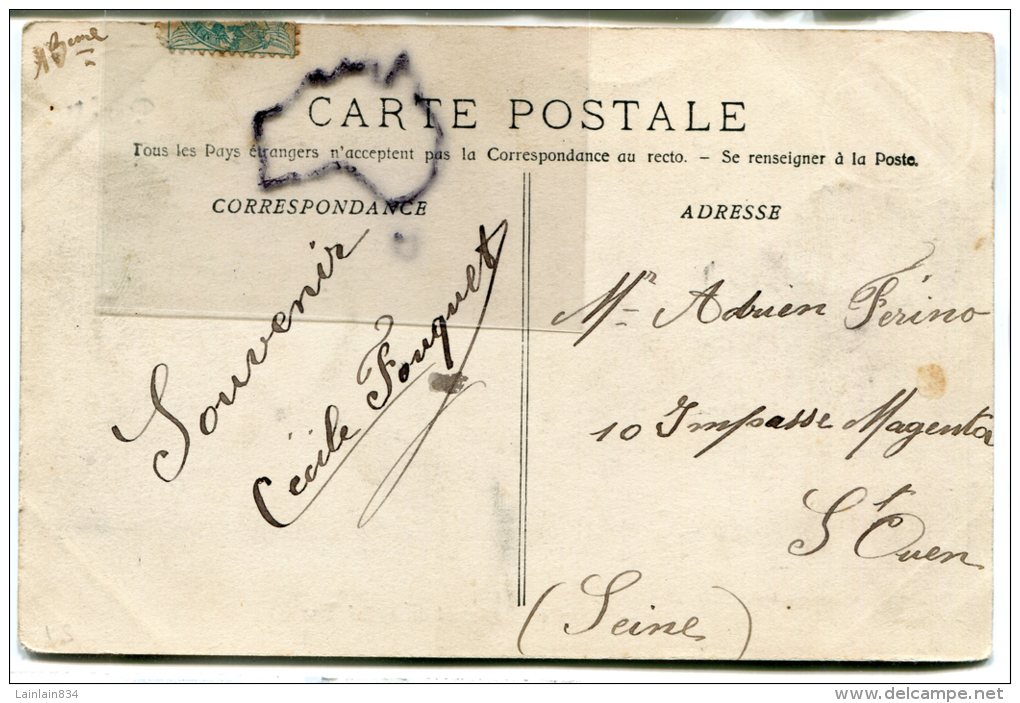 CARTE POSTALE
Tous les Pays étrangers n'acceptent pas la Correspondance au recto. – Se renseigner à la Poste.
CORRESPONDANCE
Souvenir
Cécile Fouquet
ADRESSE
Mr Adrien Férino
10 Impasse Magenta
St Ouen
(Seine)
Lainlain834
www.delcampe.net